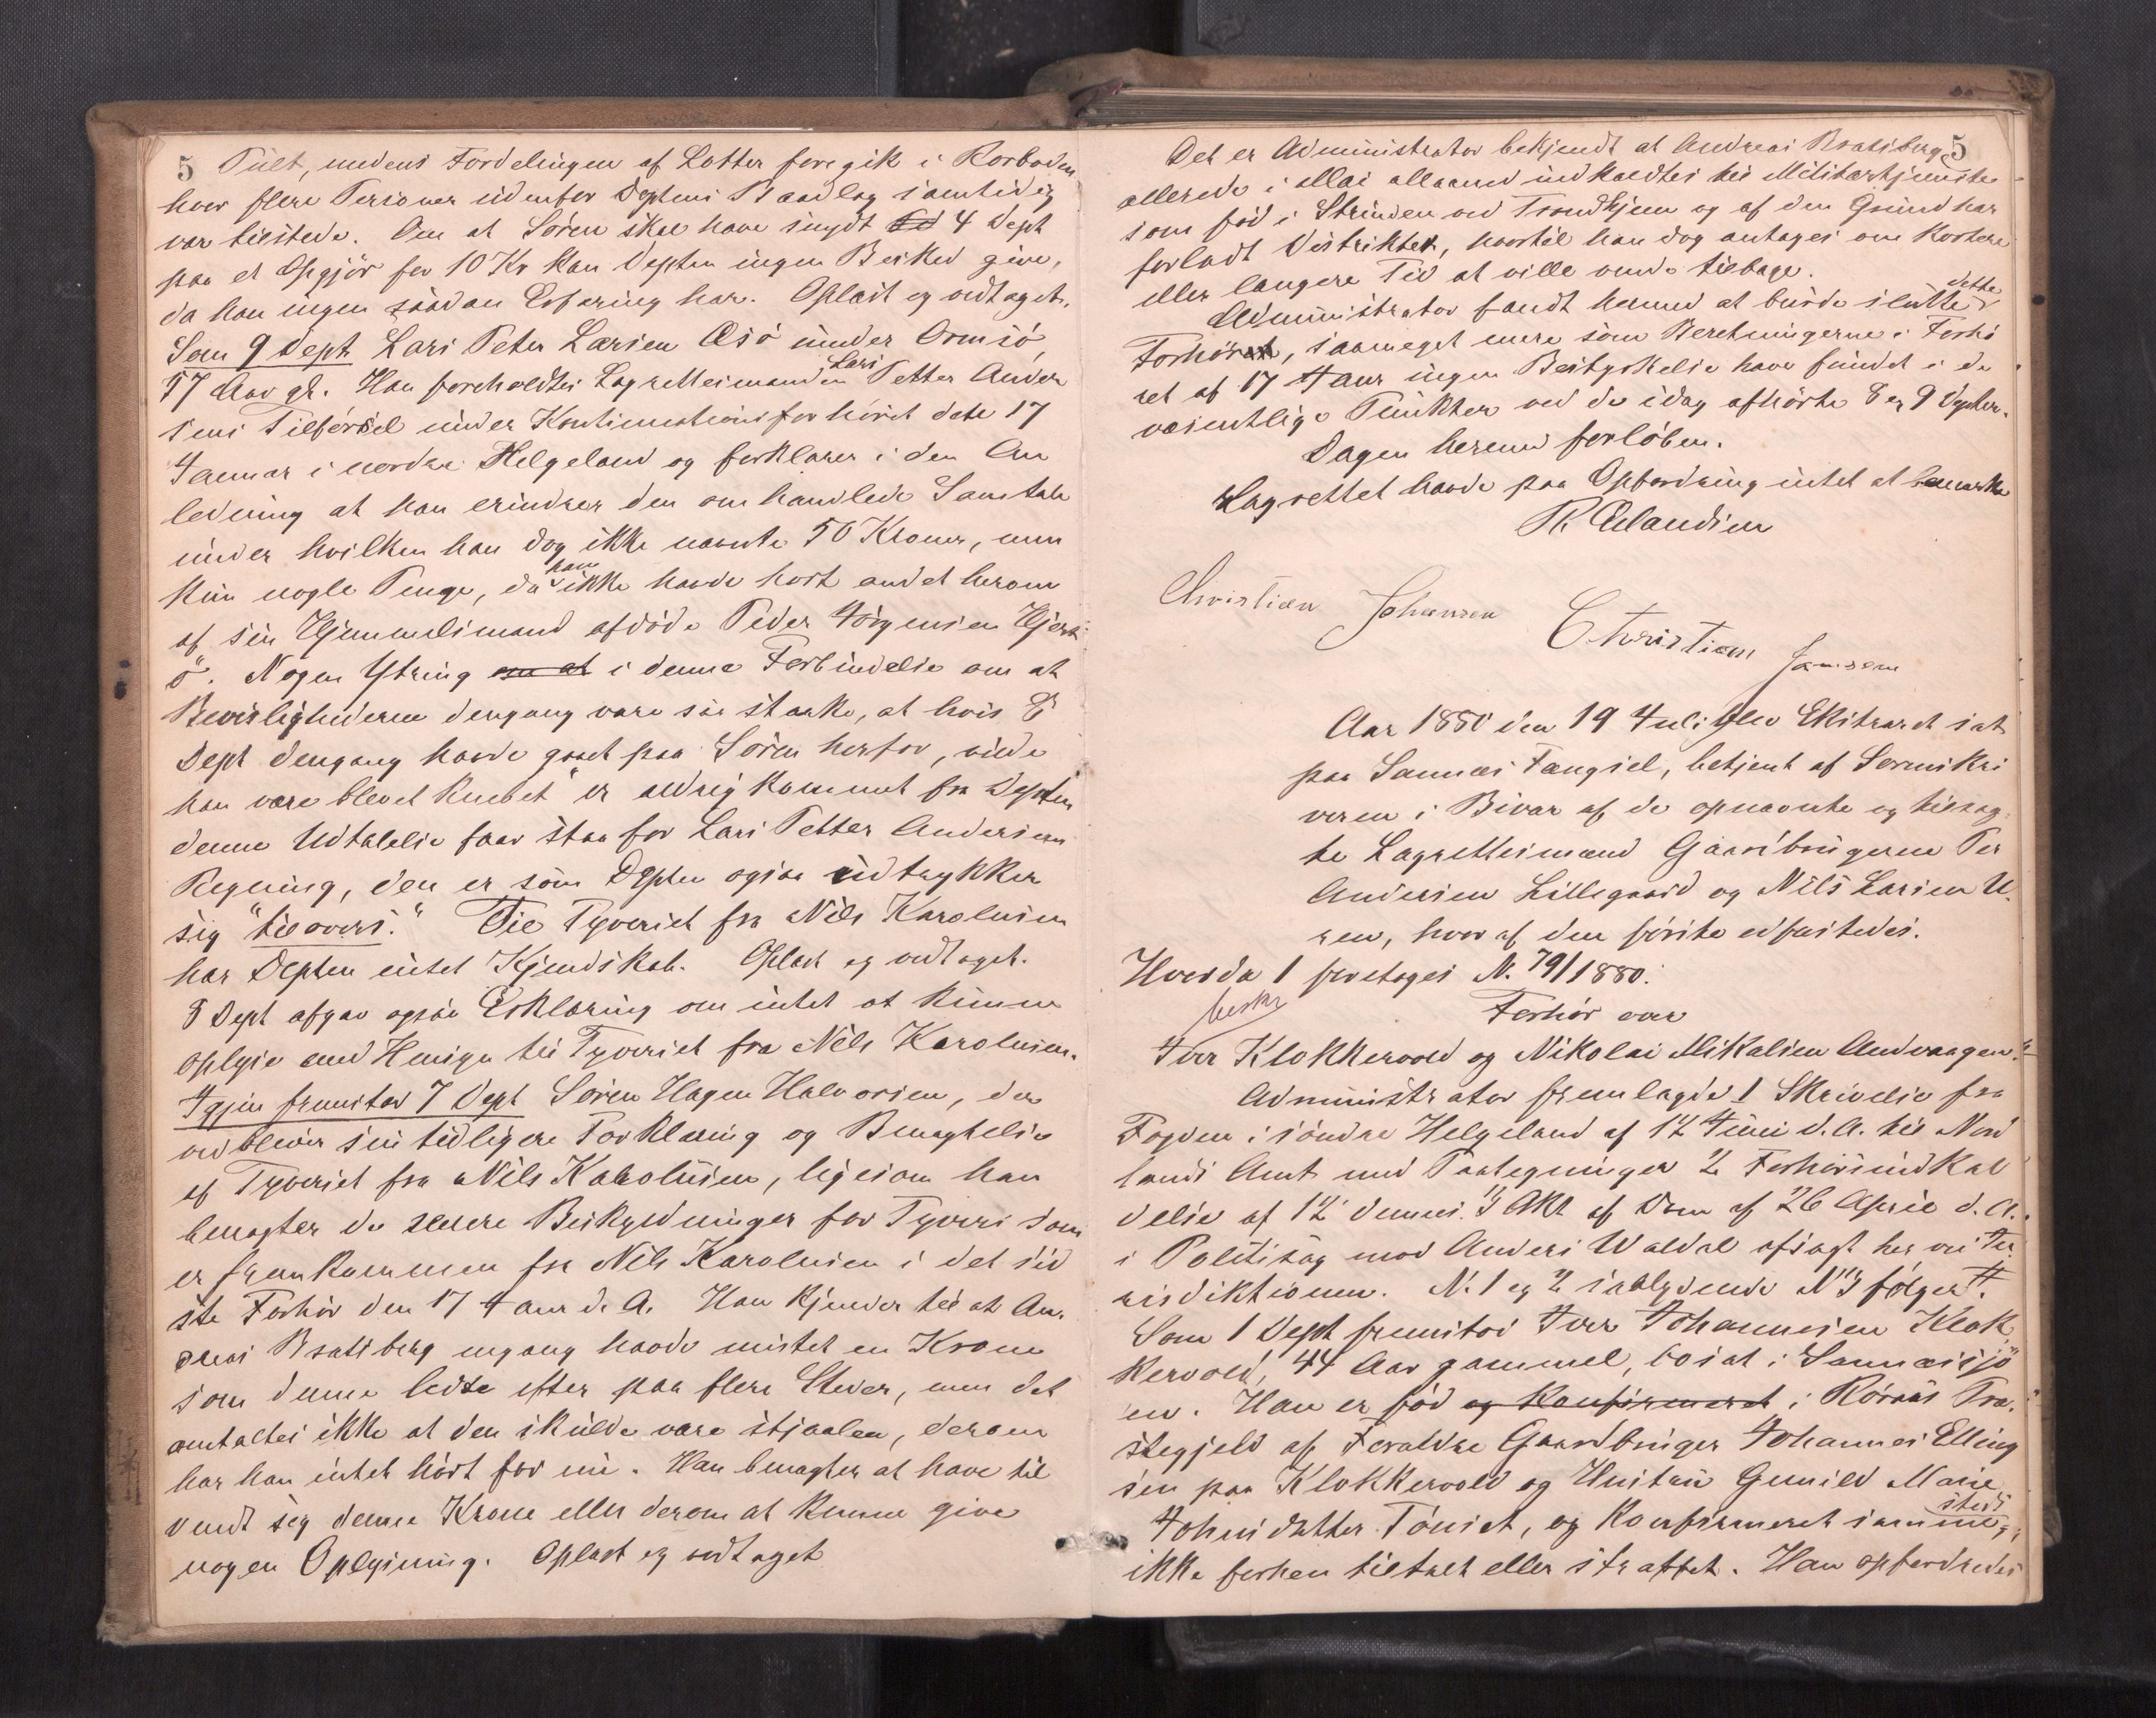 5 Pult, medens Fordelingen af Lotter foregik i Rorboden,
hvor flere Personer udenfor Deptens Baadlag samtidig
var tilstede. Om at Sören skal have snydt 4 Dept
paa et Opgjör for 10 Kr kan Depten ingen Besked give,
da han ingen saadan Erfaring har. Oplæst og vedtaget.
Som 9 Dept Lars Peter Larsen Æsö under Ormsö,
57 Aar gl. Han foreholdtes Lagrettesmanden Lars Petter Ander
sens Tilförsel under Kontinuationsforhöret dette 17
Januar i nordre Helgeland og forklarer i den An
ledning at han erindrer den omhandlede Samtale
under hvilken han dog ikke nævnte 50 Kroner, men
kun nogle Penge, da han ikke havde hört andet herom
af sin Hjemmelsmand afdöde Peder Jörgensen Hjert
ö. Nogen Ytring om at i denne Forbindelse om at
Bevislighederne dengang vare saa stærke, at hvis 8
Dept dengang havde gaaet paa Sören herfor, vilde
han være blevet knebet" er aldrig kommet fra Depten
denne Udtalelse faar staa for Lars Petter Andersens
Regning, den er som Depten ogsaa udtrykker
sig "tilovers." Til Tyveriet fra Nils Karolusen
har Depten intet Kjendskab. Oplæst og vedtaget.
8 Dept afgav ogsaa Erklæring om intet at kunne
oplyse med Hensyn til Tyveriet fra Nils Karolusen.
Igjen fremstod 7 Dept Sören Hagen Halvorsen, der
vedblever sin tidligere Forklaring og Benægtelse
af Tyveriet fra Nils Karolusen, ligesom han
benægter de senere Beskyldninger for Tyveri som
er fremkommen fra Nils Karolusen i det sid
ste Forhör den 17 Janr d. A. Han kjender til at An.
dreas Bratsberg engang havde mistet en Krone
som denne ledte efter paa flere Steder, men det
antaltes ikke at den skulde være stjaalen, derom
har han intet hört för nu. Han benægter at have til
vendt sig denne Krone eller derom at kunne give
nogen Oplysning. Oplæst og vedtaget
5
Det er Administrator bekjendt at Andreas Bratsberg
allerede i Mai allaaned indkaldtes til Militærtjeneste
som föd i Strinden ved Trondhjem og af den Grund har
forladt Distriktet, hvortil han dog antages om kortere
eller længere Tid at ville vende tilbage.
Administrator fandt hermed at burde slutte dette
Forhör, saameget mere som Beretningerne i Forhö
ret af 17 Janr ingen Bestyrkelse have fundet i de
væsentlige Punkter ved de idag afhörte 8 og 9 Depter.
Dagen hermed forlöben.
Lagrettet havde paa Opfordring intet at bemærke
R Erlandsen
Christian Johansen Christian Jansen
Aar 1880 den 19 Juli blev Ekstraret sat
paa Sannes Fængsel, betjent af Sorenskri
veren i Bivær af de opnævnte og tilsag
te Lagrettesmænd Gaardbrugerne Per
Andersen Lillegaard og Nils Larsen U.
ren, hvoraf den förste edfæstedes.
Hvorda 1 foretages N. 79/1880.
beskr
Forhör over
Iver Klokkervold og Nikolai Mikalsen Andvaagen.
Administrator fremlagde 1 Skrivelse fra
Fogden i söndre Helgeland af 12 Juni d. A. til Nord
lands Amt med Paategninger 2 Forhörsindkal
delse af 12 dennes. 3 Akt af Dom af 26 April d. A.
i Politisag mod Anders Waldal afsagt her ved Ju
risdiktionen. N. 1 og 2 saalydende N 3 fölger.
Som 1 Dept fremstod Iver Johannesen Klok
kervold, 44 Aar gammel, bosat i Sannæssjö
en. Han er föd og konfirmeret i Röraas Præ.
stegjeld af Forældre Gaardbruger Johannes Elling
sen paa Klokkervold og Hustru Gunild Marie
Johnsdatter Tönset, og konfirmeret sammesteds,
ikke forhen tiltalt eller straffet. Han opfordredes